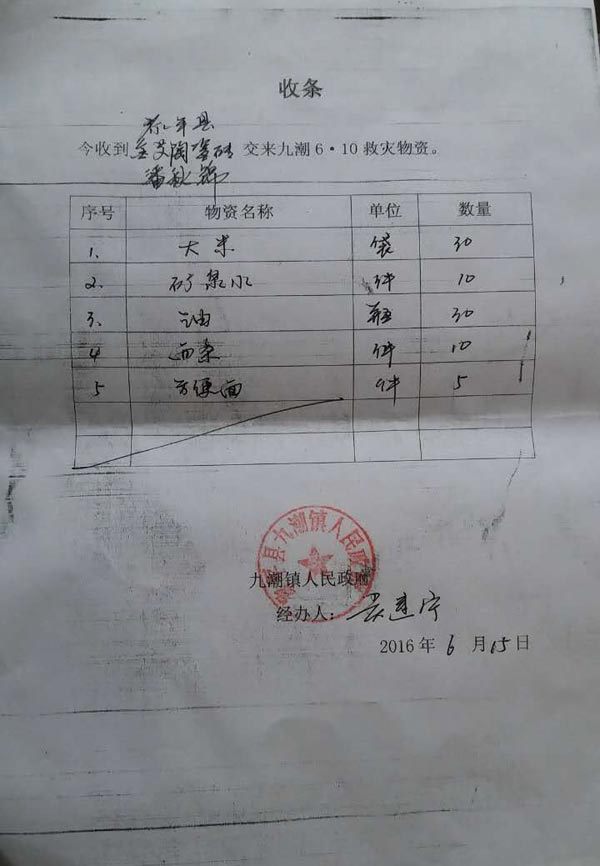 收条
从年县
今收到金艾陶瓷砖交来九潮6·10救灾物资。
潘秋锦
序号 物资名称 单位 数量
1、 大米 袋 30
2、 矿泉水 件 10
3、 油 瓶 30
4 面条 件 10
5 方便面 件 5
县九潮镇人民政府
九潮镇人民政府
经办人：
2016年6月15日